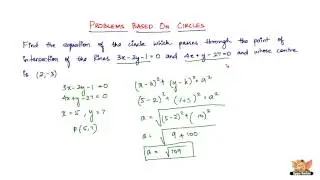 PROBLEMS BASED ON CIRCLES
Find the equation of the circle which passes through the point of
intersection of the lines 3x-2y-1=0 and 4x+y-27=0 and whose centre
is (2,-3)
3x-2y-1=0
4x+y-27=0
x=5, y=7
P(5,7)
(x-h)²+(y-k)²=a²
(5-2)²+(7+3)²=a²
a=√(5-2)²+(10)²
a=√9+100
a=√109